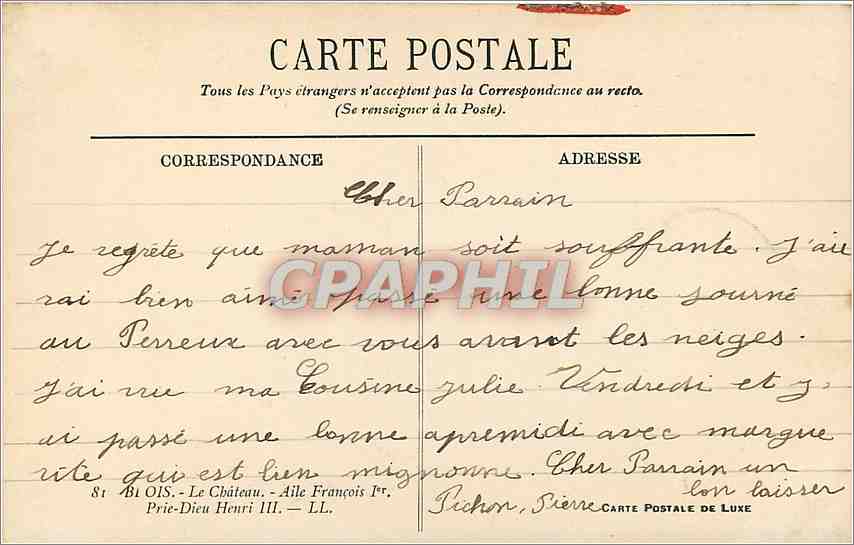 CARTE POSTALE
Tous les Pays étrangers n'acceptent pas la Correspondance au recto.
(Se renseigner à la Poste).
CORRESPONDANCE
ADRESSE
Cher Parrain
Je regrète que maman soit souffrante. J'au
rai bien aimé passé une bonne journé
au Perreux avec vous avant les neiges.
J'ai vue ma Cousine Julie Vendredi et j,
ai passé une bonne apremidi avec margue
rite qui est bien mignonne. Cher Parrain un
bon laisser
Pichon, Pierre
81 BLOIS. - Le Château. - Aile François Ier.
Prie-Dieu Henri III. — LL.
CARTE POSTALE DE LUXE
CPAPHIL